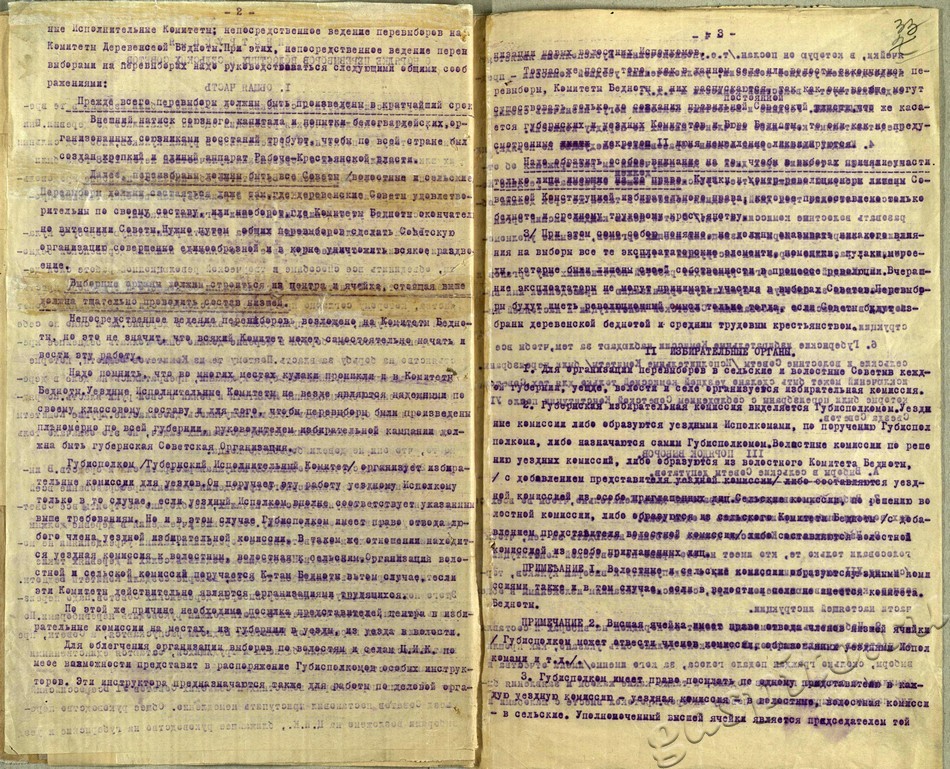 - 2 -
ные Исполнительные Комитеты; непосредственное ведение перевыборов на
Комитеты Деревенской Бедноты. При этих, непосредственное ведение перев
выборами на перевыборах надо руководствоваться следующими общими сооб
ражениями:
I. ОБЩАЯ ЧАСТЬ
Прежде всего перевыборы должны быть произведены в кратчайший срок
Внешний натиск союзного капитала и попытки белогвардейских, ор-
ганизованных союзниками восстаний требуют, чтобы по всей стране был
создан крепкий и единый аппарат Рабоче-Крестьянской Власти.
Далее, перевыбраны должны быть все Советы /волостные и сельские
Перевыборы должны состояться даже там, где деревенские Советы удовлетво-
рительны по своему составу, или наоборот, где Комитеты Бедноты окончатель
но вытеснили Советы. Нужно путем общих перевыборов сделать Советскую
организацию совершенно единообразной и в корне уничтожить всякое раздво-
ение.
Выборные органы должны строиться из центра и ячейка, стоящая выше
должна тщательно проводить состав низшей.
Непосредственное ведение перевыборов возложено на Комитеты Бедно-
ты, но это не значит, что всякий Комитет может самостоятельно начать и
вести эту работу.
Надо помнить, что во многих местах кулаки проникли и в Комитеты
Бедноты. Уездные Исполнительные Комитеты не везде являются надежными по
своему классовому составу и для того, чтобы перевыборы были произведены
планомерно по всей губернии, руководителем избирательной кампании дол-
жна быть губернская Советская Организация.
Губисполком /Губернский Исполнительный Комитет/ организует избира-
тельные комиссии для уездов. Он поручает эту работу уездному Исполкому
только в том случае, если уездный Исполком вполне соответствует указанным
выше требованиям. Но и в этом случае Губисполком имеет право отвода лю-
бого члена уездной избирательной комиссии. В таком же отношении находит-
ся уездная комиссия к волостным, волостная к сельским. Организация воло-
стной и сельской комиссий поручается К-там Бедноты в том случае, если
эти Комитеты действительно являются организациями трудящихся.
По этой же причине необходима посылка представителей центра и изби-
рательные комиссии на местах, из губернии в уезды, из уезда в волости.
Для облегчения организации выборов по волостям и селам Ц.И.К. по
мере возможности представит в распоряжение Губисполкомов особых инструк-
торов. Эти инструктора предназначаются также для работы по деловой орга-
- 3 -
33
низации новых волостных Исполкомов.
Точно же после того, как в данном селе или волости закончились пе-
ревыборы, Комитеты Бедноты в них распускаются, так как они вообще могут
существовать только до создания правильной Советской
постоянной
же каса-
ется губернских и уездных Комитетов и Бюро Бедноты, то они как не преду-
смотренные декретом II июня немедленно ликвидируются.
Надо обратить особое внимание на то, чтобы в выборах приняли участи
только лица имеющие на то право. Кулаки и контрреволюционеры лишены Со-
ветской Конституцией избирательного права, которое предоставлено только
бедноте и среднему трудовому крестьянству.
3/ При этом само собою понятно, не должны оказывать никакого влия-
ния на выборы все те эксплоататорские элементы, помещики, кулаки, мирое-
ды, которые были лишены своей собственности в процессе революции. Вчера-
ние эксплоататоры не могут принимать участия в выборах Советов. Перевыбо-
ры будут иметь революционный смысл только тогда, если Советы будут из-
браны деревенской беднотой и средним трудовым крестьянством.
II ИЗБИРАТЕЛЬНЫЕ ОРГАНЫ.
1. Для организации перевыборов в сельские и волостные Советы в каж-
дой губернии, уезде, волости и селе организуется избирательная комиссия.
2. Губернская избирательная комиссия выделяется Губисполкомом. Уезд
ные комиссии либо образуются уездными Исполкомами, по поручению Губиспол
полкома, либо назначаются самим Губисполкомом. Волостные комиссии по реше
нию уездных комиссий, либо образуются из волостного Комитета Бедноты,
/ с добавлением представителя уездной комиссии/ либо составляются уезд-
ной комиссией из особо приглашенных лиц. Сельские комиссии, по решению во
лостной комиссии, либо образуются из сельского Комитета Бедноты /с доба-
влением представителя волостной комиссии/ либо составляются волостной
комиссией из особо приглашенных лиц.
ПРИМЕЧАНИЕ I. Волостные и сельские комиссии образуются уездными коми
ссиями также и в том случае, если в волости и селе не имеется комитета
Бедноты.
ПРИМЕЧАНИЕ 2. Высшая ячейка имеет право отвода членов низшей ячейки
/ Губисполком может отвести членов комиссии, образованных уездными Испол
комами и т.д./
3. Губисполком имеет право посылать по одному представителю в каж-
дую уездную комиссию - уездная комиссия - в волостные, волостная комисси
- в сельские. Уполномоченный высшей ячейки является председателем той